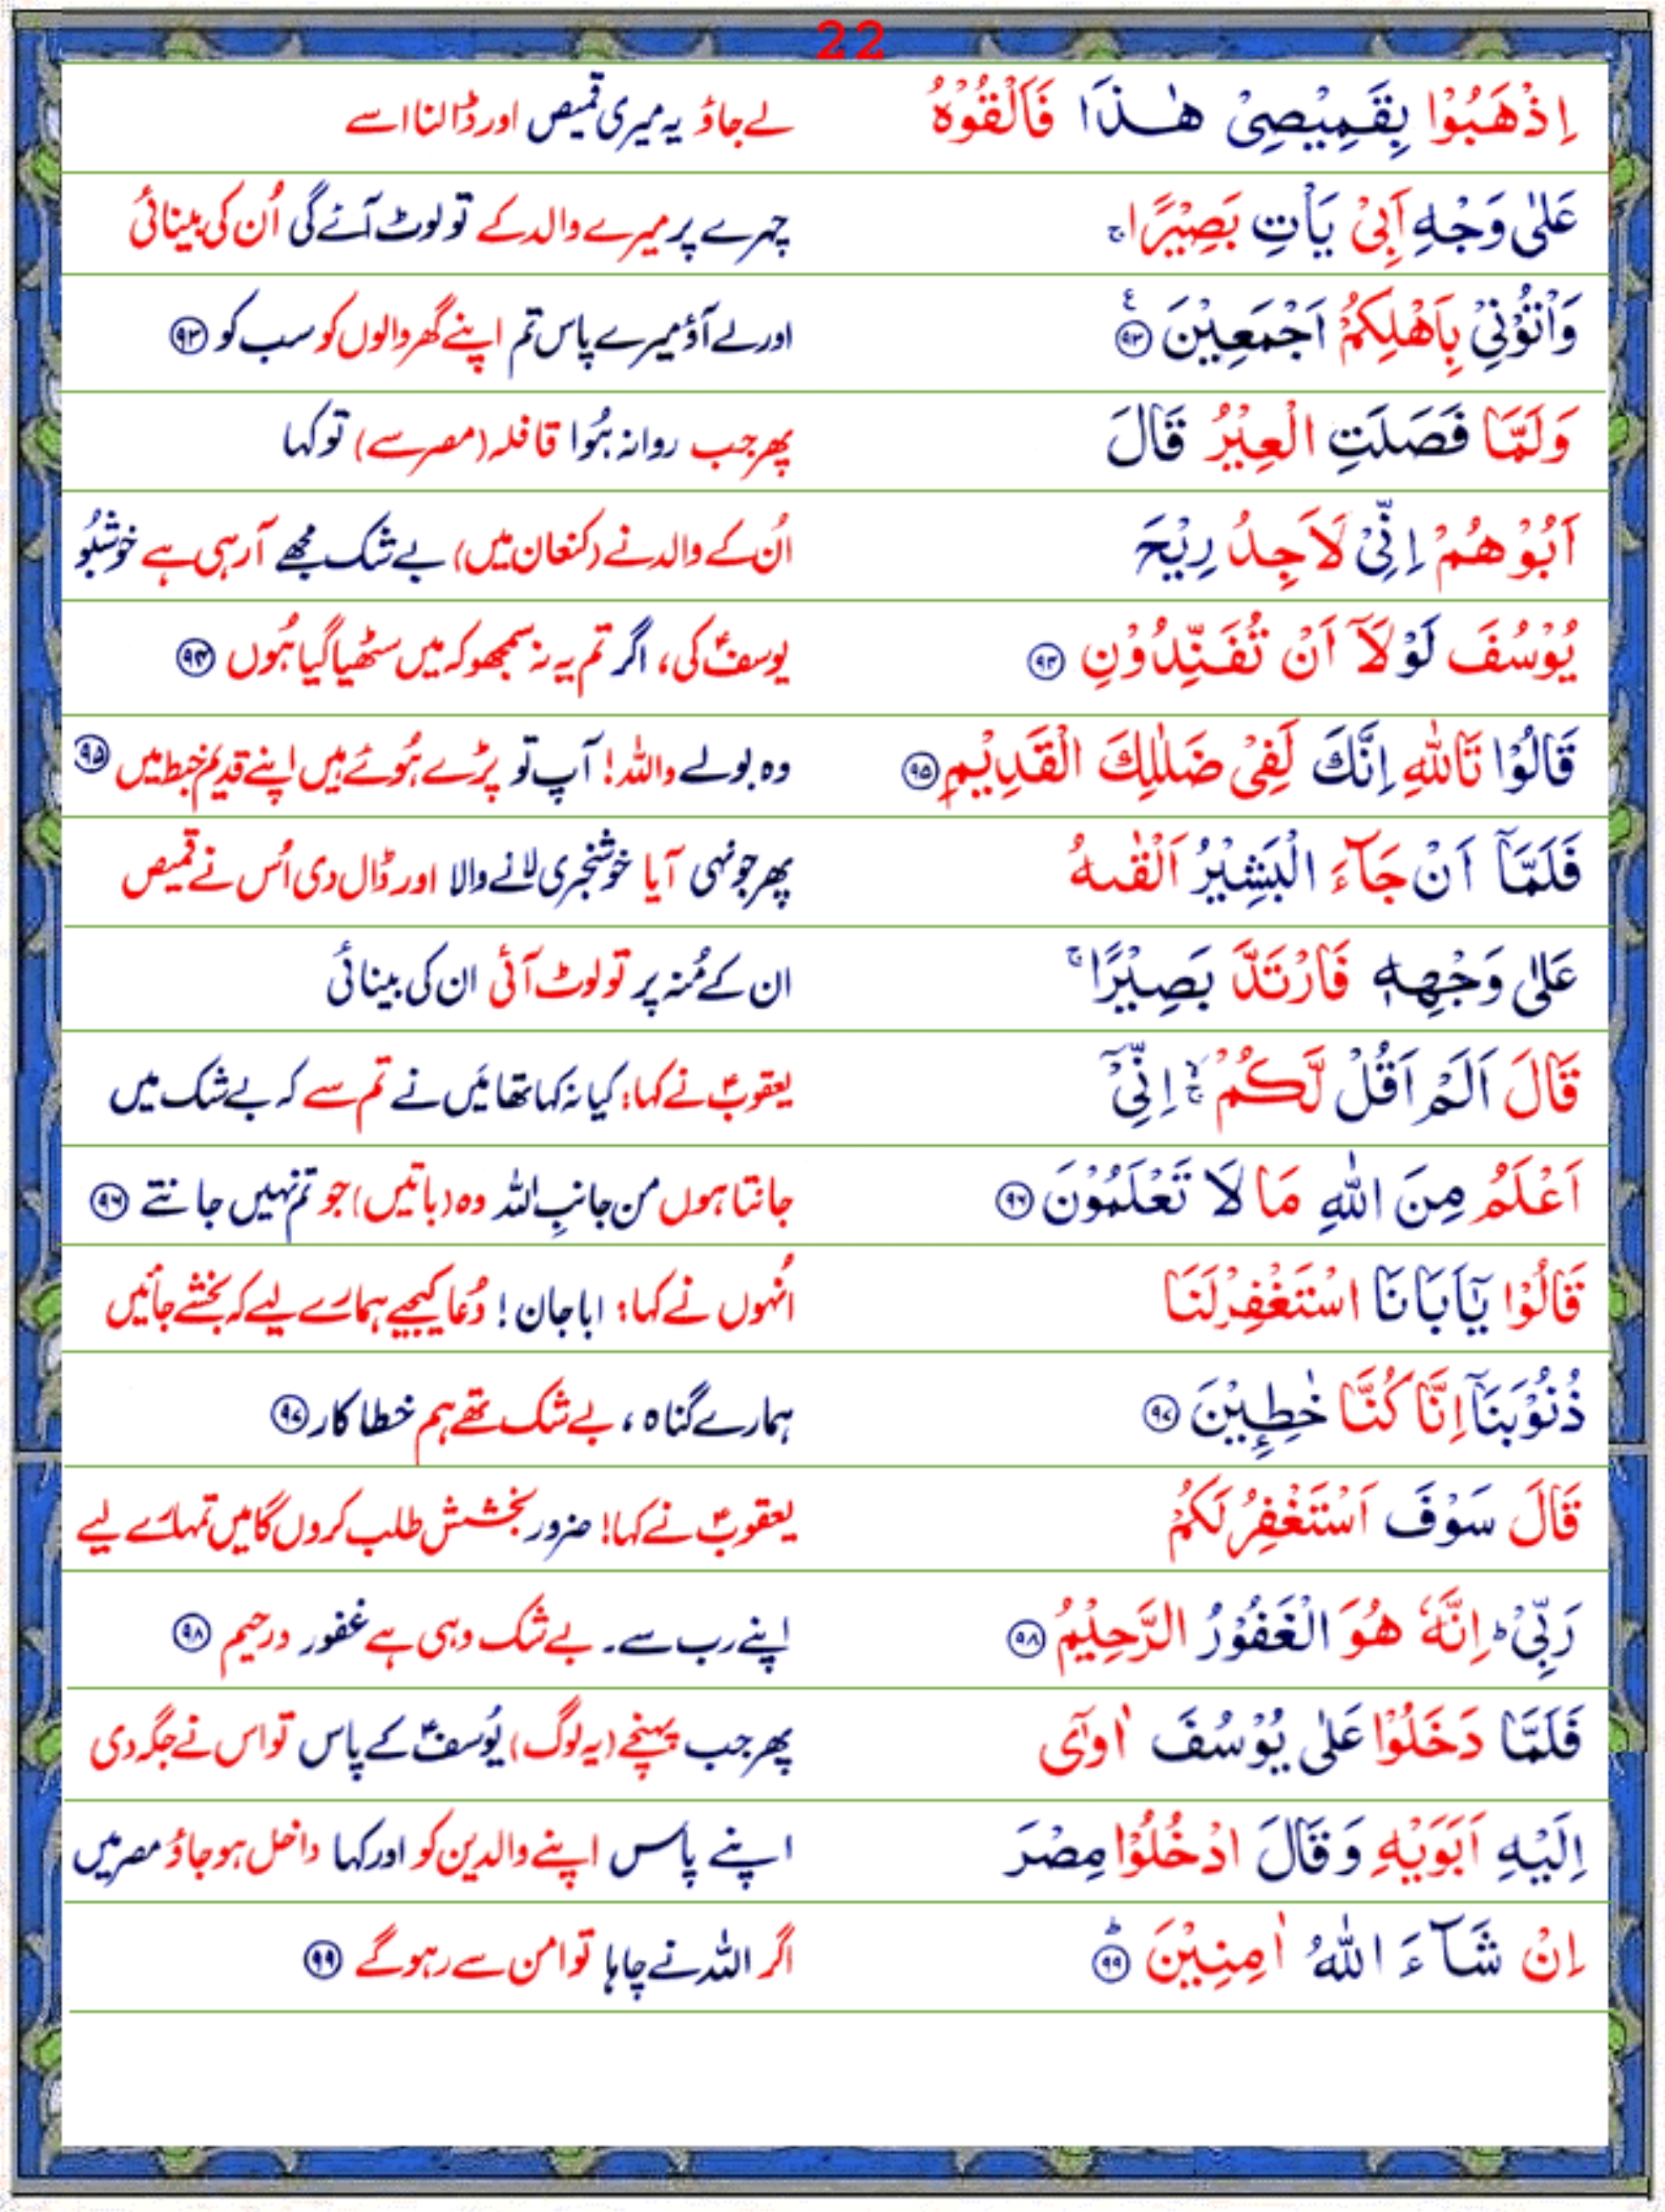 22
اِذْهَبُوْا بِقَمِيْصِيْ هٰذَا فَاَلْقُوْهُ
لے جاؤ یہ میری قمیص اور ڈالنا اسے
عَلٰى وَجْهِ اَبِيْ يَاْتِ بَصِيْرًا ۚ
چہرے پر میرے والد کے تو لوٹ آئے گی اُن کی بینائی
وَاْتُوْنِيْ بِاَهْلِكُمْ اَجْمَعِيْنَ ۩۹۳ ع
اور لے آؤ میرے پاس تم اپنے گھر والوں کو سب کو ۹۳
وَلَمَّا فَصَلَتِ الْعِيْرُ قَالَ
پھر جب روانہ ہُوا قافلہ (مصر سے) تو کہا
اَبُوْهُمْ اِنِّيْ لَاَجِدُ رِيْحَ
اُن کے والد نے (کنعان میں) بے شک مجھے آ رہی ہے خوشبُو
يُوْسُفَ لَوْلَاۤ اَنْ تُفَنِّدُوْنِ ۹۴
یوسفؑ کی، اگر تم یہ نہ سمجھو کہ میں سٹھیا گیا ہُوں ۹۴
قَالُوْا تَاللّٰهِ اِنَّكَ لَفِيْ ضَلٰلِكَ الْقَدِيْمِ ۹۵
وہ بولے واللہ! آپ تو پڑے ہُوئے ہیں اپنے قدیم خبط میں ۹۵
فَلَمَّاۤ اَنْ جَآءَ الْبَشِيْرُ اَلْقٰىهُ
پھر جونہی آیا خوشخبری لانے والا اور ڈال دی اُس نے قمیص
عَلٰى وَجْهِهٖ فَارْتَدَّ بَصِيْرًا ۚ
ان کے مُنہ پر تو لوٹ آئی ان کی بینائی
قَالَ اَلَمْ اَقُلْ لَّكُمْ ۚ اِنِّيْۤ
یعقوبؑ نے کہا: کیا نہ کہا تھا مَیں نے تم سے کہ بے شک میں
اَعْلَمُ مِنَ اللّٰهِ مَا لَا تَعْلَمُوْنَ ۹۶
جانتا ہوں من جانبِ اللہ وہ (باتیں) جو تم نہیں جانتے ۹۶
قَالُوْا يٰۤاَبَانَا اسْتَغْفِرْ لَنَا
اُنہوں نے کہا: ابا جان! دُعا کیجیے ہمارے لیے کہ بخشے جائیں
ذُنُوْبَنَاۤ اِنَّا كُنَّا خٰطِـِٕيْنَ ۹۷
ہمارے گناہ، بے شک تھے ہم خطا کار ۹۷
قَالَ سَوْفَ اَسْتَغْفِرُ لَكُمْ
یعقوبؑ نے کہا! ضرور بخشش طلب کروں گا میں تمہارے لیے
رَبِّيْ ؕ اِنَّهٗ هُوَ الْغَفُوْرُ الرَّحِيْمُ ۹۸
اپنے رب سے۔ بے شک وہی ہے غفور ورحیم ۹۸
فَلَمَّا دَخَلُوْا عَلٰى يُوْسُفَ اٰوٰٓى
پھر جب پہنچے (یہ لوگ) یُوسفؑ کے پاس تو اس نے جگہ دی
اِلَيْهِ اَبَوَيْهِ وَقَالَ ادْخُلُوْا مِصْرَ
اپنے پاس اپنے والدین کو اور کہا داخل ہو جاؤ مصر میں
اِنْ شَآءَ اللّٰهُ اٰمِنِيْنَ ؕ ۹۹
اگر اللہ نے چاہا تو امن سے رہو گے ۹۹